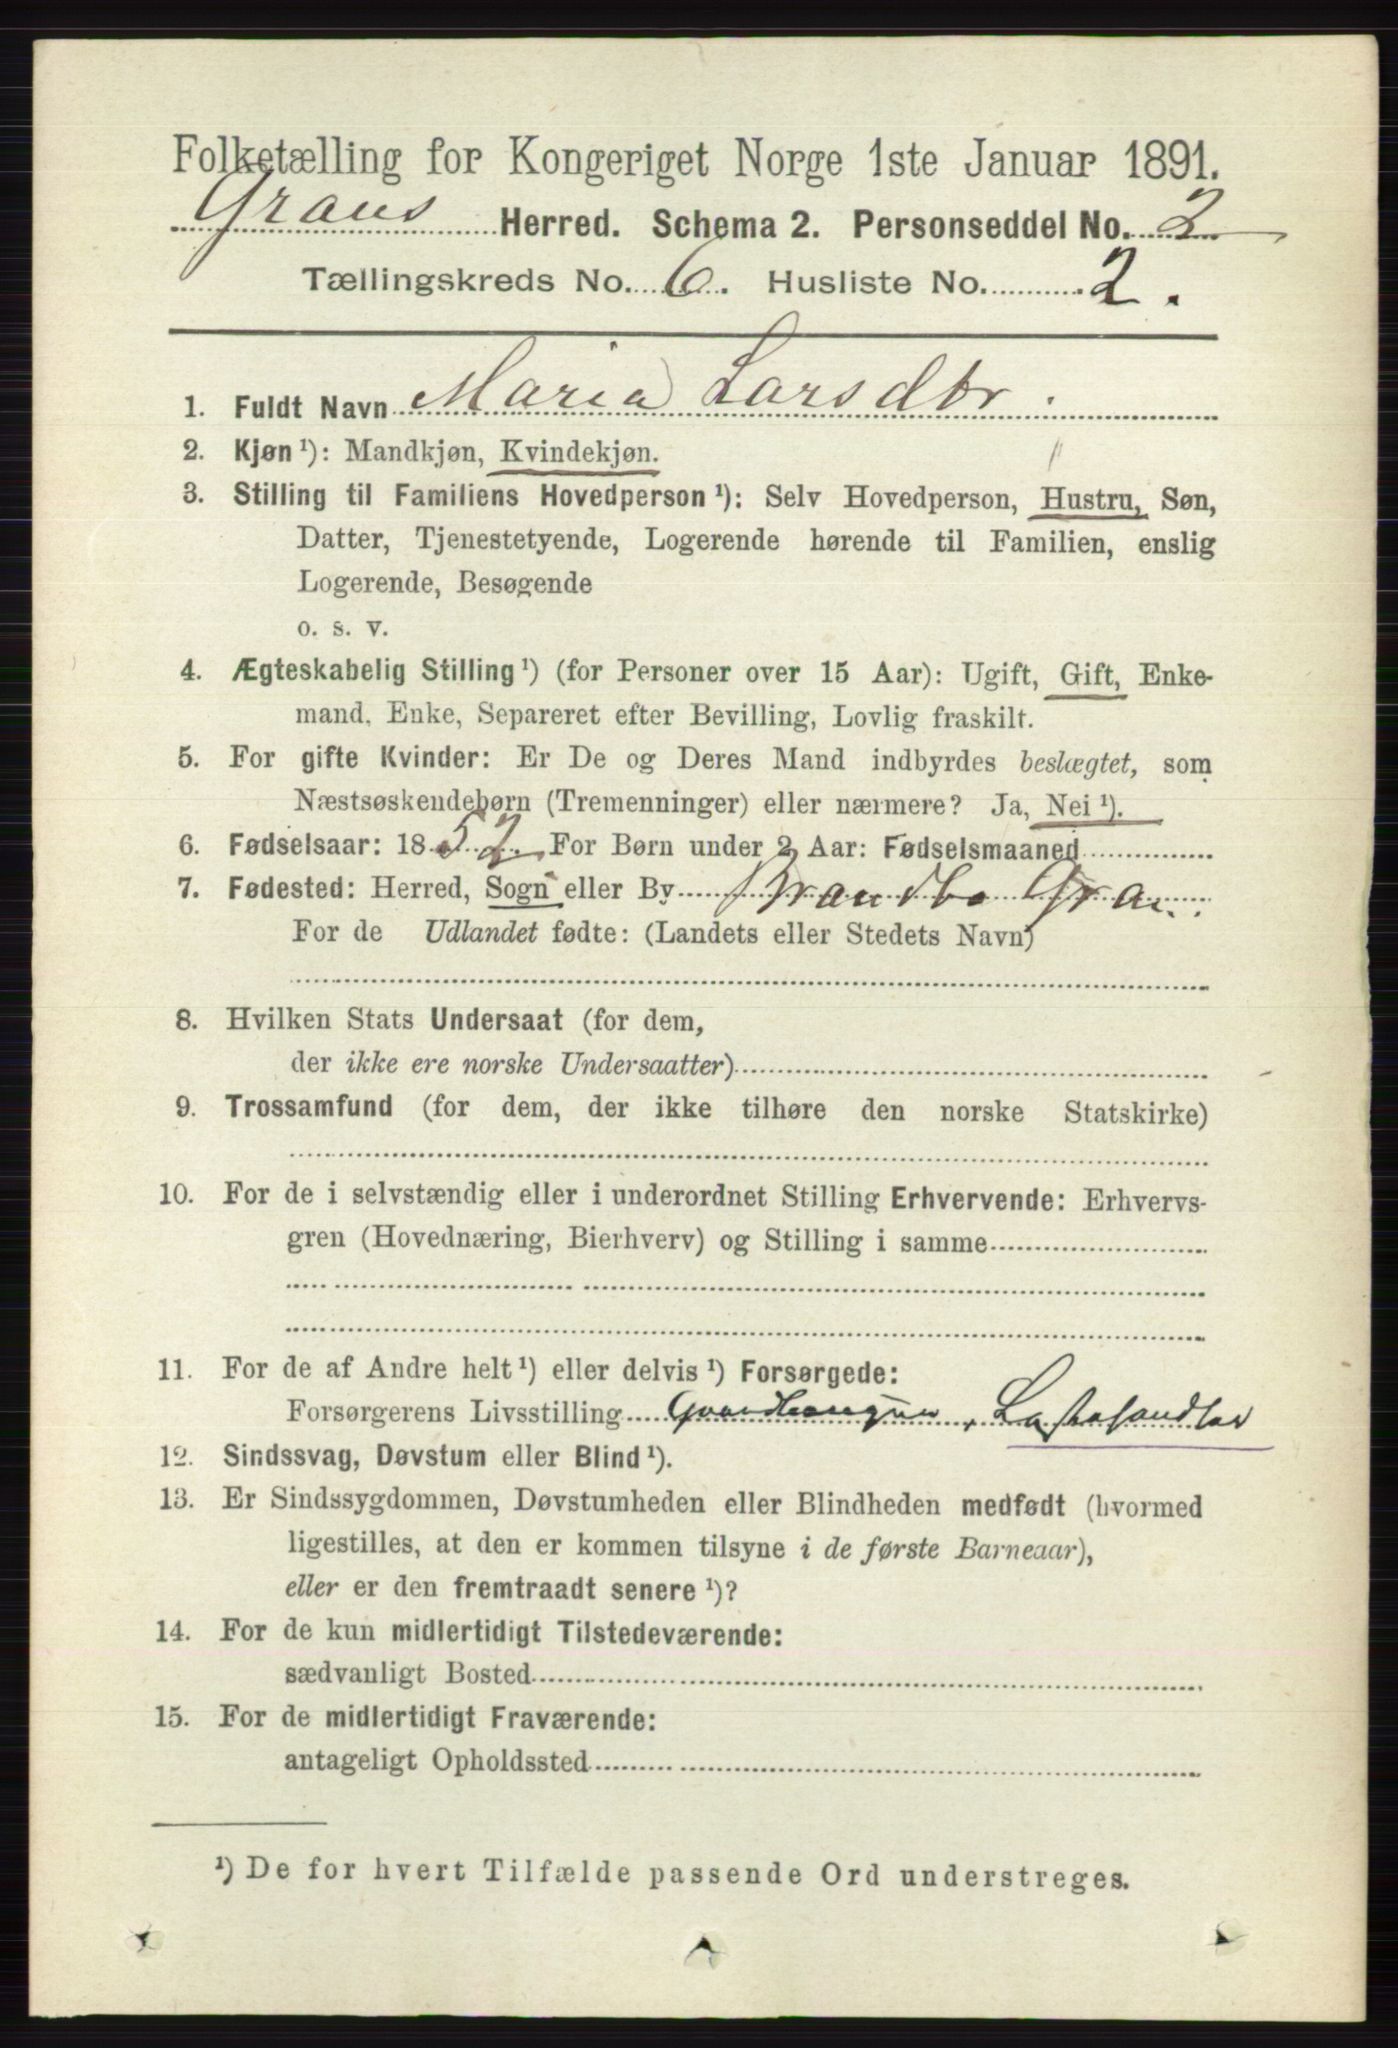 Folketælling for Kongeriget Norge 1ste Januar 1891.
Grans Herred. Schema 2. Personseddel No. 2
Tællingskreds No. 6. Husliste No. 2.
1. Fuldt Navn Maria Larsdtr.
2. Kjøn ¹): Mandkjøn, Kvindekjøn.
3. Stilling til Familiens Hovedperson ¹): Selv Hovedperson, Hustru, Søn,
Datter, Tjenestetyende, Logerende hørende til Familien, enslig
Logerende, Besøgende
o. s. v.
4. Ægteskabelig Stilling ¹) (for Personer over 15 Aar): Ugift, Gift, Enke-
mand, Enke, Separeret efter Bevilling, Lovlig fraskilt.
5. For gifte Kvinder: Er De og Deres Mand indbyrdes beslægtet, som
Næstsøskendebørn (Tremenninger) eller nærmere? Ja, Nei ¹).
6. Fødselsaar: 1852. For Børn under 2 Aar: Fødselsmaaned
7. Fødested: Herred, Sogn eller By Brandbo Gran.
For de Udlandet fødte: (Landets eller Stedets Navn)
8. Hvilken Stats Undersaat (for dem,
der ikke ere norske Undersaatter)
9. Trossamfund (for dem, der ikke tilhøre den norske Statskirke)
10. For de i selvstændig eller i underordnet Stilling Erhvervende: Erhvervs-
gren (Hovednæring, Bierhverv) og Stilling i samme
11. For de af Andre helt ¹) eller delvis ¹) Forsørgede:
Forsørgerens Livsstilling
12. Sindssvag, Døvstum eller Blind ¹).
13. Er Sindssygdommen, Døvstumheden eller Blindheden medfødt (hvormed
ligestilles, at den er kommen tilsyne i de første Barneaar),
eller er den fremtraadt senere ¹)?
14. For de kun midlertidigt Tilstedeværende:
sædvanligt Bosted
15. For de midlertidigt Fraværende:
antageligt Opholdssted
¹) De for hvert Tilfælde passende Ord understreges.